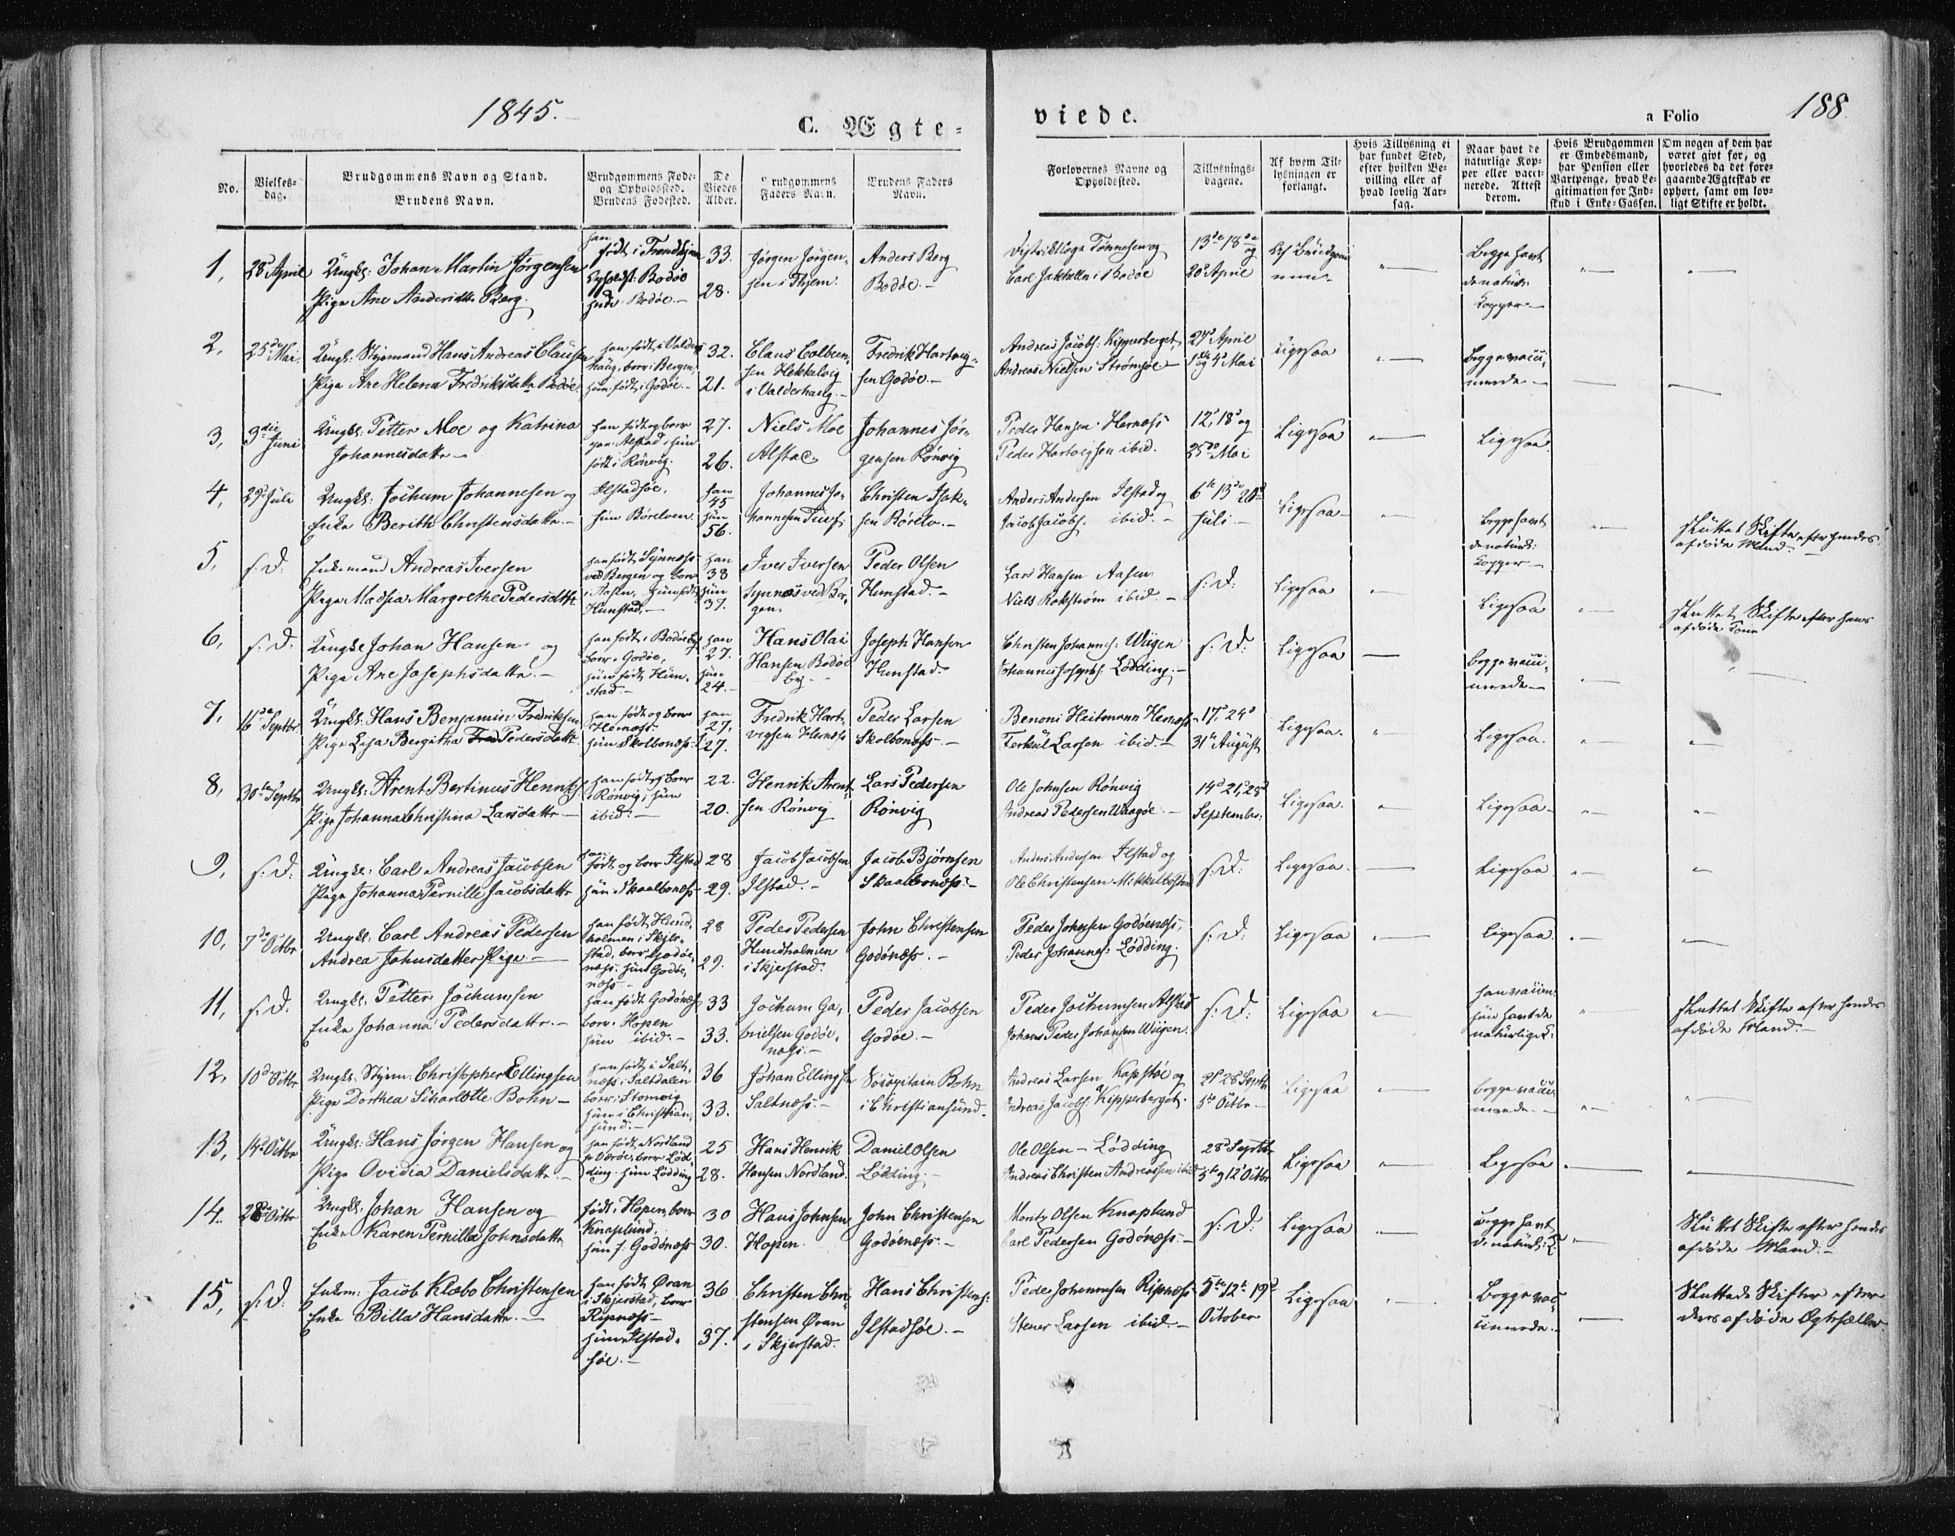 1845.
C. Ægte-
viede.
a Folio
188.
No.
Vielses-
dag.
Brudgommens Navn og Stand.
Brudens Navn.
Brudgommens Føde-
og Opholdssted.
Brudens Fødested.
De
Viedes
Alder.
Brudgommens
Faders Navn.
Brudens Faders
Navn.
Forlovernes Navne og
Opholdssted.
Tillysnings-
dagene.
Af hvem Til-
lysningen er
forlangt.
Hvis Tillysning ei
har fundet Sted,
efter hvilken Be-
villing eller af
hvad lovlig Aar-
sag.
Naar havt de
naturlige Kop-
per eller vacci-
nerede. Attest
derom.
Hvis Brudgommen
er Embedsmand,
har Pension eller
Vartpenge, hvad Le-
gitimation for Ind-
skud i Enke-Cassen.
Om nogen af dem har
været givt før, og
hvorledes da det fore-
gaaende Ægteskab er
ophørt, samt om lov-
ligt Skifte er holdt.
1,
28 April
Ungk: Johan Martin Jørgensen
Pige Ane Berg.
han
født i Trondhjem
Bodöe
Bodöe.
33.
28.
Jörgen Jörgen-
sen i Thjem:
Anders Berg
Bodöe.
Tönnesen og
Carl i Bodöe
13de 18de og
20de April
Begge havt
de naturl:
Kopper
2,
25de Mai
Ungk: Styrmand Hans Andreas Clausen
Pige Ane Helena Fredriksdatr Bodöe
han født i Valder-
haug, boer i Bergen,
hun født i Godöe.
32.
21.
Claus Colbeen-
sen
i Valderhaug.
Fredrik Hartvig-
sen Godöe.
Andreas Jacobs: Kipperberget,
Andreas Nielsen Strömsöe
27de April
1ste og 4de Mai
Ligesaa
Begge vacci-
nerede.
3,
3die Juni
Ungk: Petter Moe og Katrina
Johannesdatr
han født og boer
paa Alstad, hun
født i Rönvig.
27.
26.
Niels Moe
Alstad
Johannes Jör-
gensen Rönvig
Peder Hansen Hernæss
Peder Hartvigsen ibid.
12, 18 og
25de Mai
Ligesaa
Ligesaa.
4,
29 Juli
Ungk: Jochum Johannesen og
Enke Berith Christensdatr.
Ilstadsöe,
hun Börelven.
han
45
hun
56.
Johannes Jo-
hannesen
Christen Isak-
sen Börelv.
Anders Andersen Ilstad og
Jacob Jacobs: ibid.
6te 13de 20de
Juli
Ligesaa
Begge havt
de naturl:
Kopper
Sluttet Skifte efter hendes
afdöde Mand.
5,
s: D:
Enkemand Andreas Iversen
Pige Madsia Margrethe Pedersdatr
han født i Synnæss
ved Bergen og boer
i Aasen, hun født
Hunstad.
han
38
hun
37.
Iver Iversen
Synnæs ved Ber-
gen.
Peder Olsen
Hunstad.
Lars Hansen Aasen
Niels Rokström ibid.
s: D:
Ligesaa
Ligesaa
Sluttet Skifte efter hans
afdöde Kone
6,
s: D:
Ungk: Johan Hansen og
Pige Ane Josephsdatr.
han født i Bodöe
boer Godöe,
hun født Hun-
stad.
han
27.
hun
24.
Hans Olai
Hansen Bodöe
Joseph Hansen
Hunstad.
Christen Johannes: Wiigen
Johannes Josephs: Lödding.
s: D:
Ligesaa
Begge vacci-
nerede
7,
16de Septbr
Ungk: Hans Benjamin Fredriksen
Pige Lesa Bergitha Pedersdatr
han født og boer
Hernæss
hun Skolbonæss
han
27,
27.
Fredrik Hart-
vigsen Hernæs
Peder Larsen
Skolbonæss.
Benoni Heitmann Hernæss
Terkül Larsen ibid.
17de 24de
31te August
Ligesaa.
Ligesaa.
8,
30te Septbr
Ungk: Arent Bertinus Henriks:
Pige Johanna Christina Larsdatr.
han født og boer
i Rönvig, hun
ibid:
22.
20.
Henrik Arent-
sen Rönvig
Lars Pedersen
Rönvig
Ole Johnsen Rönvig
Andreas Pedersen Waagöe.
14de 21, 28de
September
Ligesaa.
Ligesaa
9,
s: D:
Ungk: Carl Andreas Jacobsen
Pige Johanna Pernille Jacobsdatr
født og boer Ilstad
hun Skaalbonæss
28
29.
Jacob Jacobsen
Ilstad.
Jacob Björnsen
Skaalbonæss.
Anders Andersen Ilstad og
Ole Christensen Mikkelbosted
s: D:
Ligesaa.
Ligesaa
10,
7de Octbr
Ungk: Carl Andreas Pedersen
Andrea Johnsdatter Pige
han født Hund-
holmen i Skjer-
stad, boer Godöe-
næss. hun Godöe-
næss
28
29.
Peder Pedersen
Hundholmen
i Skjerstad.
John Christensen
Godönæss.
Peder Johnsen Godöenæss,
Peder Johannes: Lödding.
s: D:
Ligesaa
Ligesaa.
11,
s: D:
Ungk: Petter Jochumsen
Enke Johanna Pedersdatr.
han født Godönæss
boer Hopen
hun ibid.
33
33.
Jochum Ga-
brielsen Godöe-
næss.
Peder Jacobsen
Godöe.
Peder Jochumsen Alstad
Johans Peder Johansen Wiigen.
s: D:
Ligesaa
han vaccin:
hun havt de
naturlige K:
Sluttet Skifte efter hendes
afdöde Mand.
12,
10de Octbr
Ungk: Styrm: Christopher Ellingsen
Pige Dorthea Scharlotte Bohn
han født i Salt-
næss i Saltdalen
boer Stomvig
hun i Christian-
sund.
36
33.
Johan Ellingsen
Saltnæss.
Bohn
i Christiansund.
Andreas Larsen Kopstöe og
Andreas Jacobs: Kipperberget.
21 28 Septbr
5te Octbr
Ligesaa
Begge vacci-
nerede.
13,
14de Octbr
Ungk: Hans Jörgen Hansen og
Pige Ovidia Danielsdatr.
han født Nordland
boer Löd-
ding. hun Lödding
25
28.
Hans Henrik
Hansen Nordland.
Daniel Olsen
Lödding.
Ole Olsen Lödding
Andreas Christen Andreassen ibid
28de Septbr
5te og 12te Octbr
Ligesaa
Ligesaa
14.
28de Octbr
Ungk: Johan Hansen og
Enke Karen Pernilla Johnsdatr
født i Hopen, boer
Knaplund,
hun f. Godönæss
30
30.
Hans Johnsen
Hopen.
John Christensen
Godöenæss.
Moritz Olsen Knaplund
Carl Pedersen Godönæss.
s: D:
Ligesaa
Begge havt
de naturl: K:
Sluttet Skifte efter hendes
afdöde Mand.
15,
s: D:
Enkem: Jacob Klæbo Christensen
Enke Billa Hansdatr.
han født Öran
i Skjerstad, boer
Ripnæss
hun Ilstad-
söe.
36
37.
Christen Chri-
stensen Öran
i Skjerstad.
Hans Christens:
Ilstadsöe.
Peder Johannesen Ripnæss
Stener Larsen ibid.
5te 12te 19de
October
Ligesaa
Begge vac-
cinerede.
Sluttede Skifter efter
deres afdöde Ægtefæller.